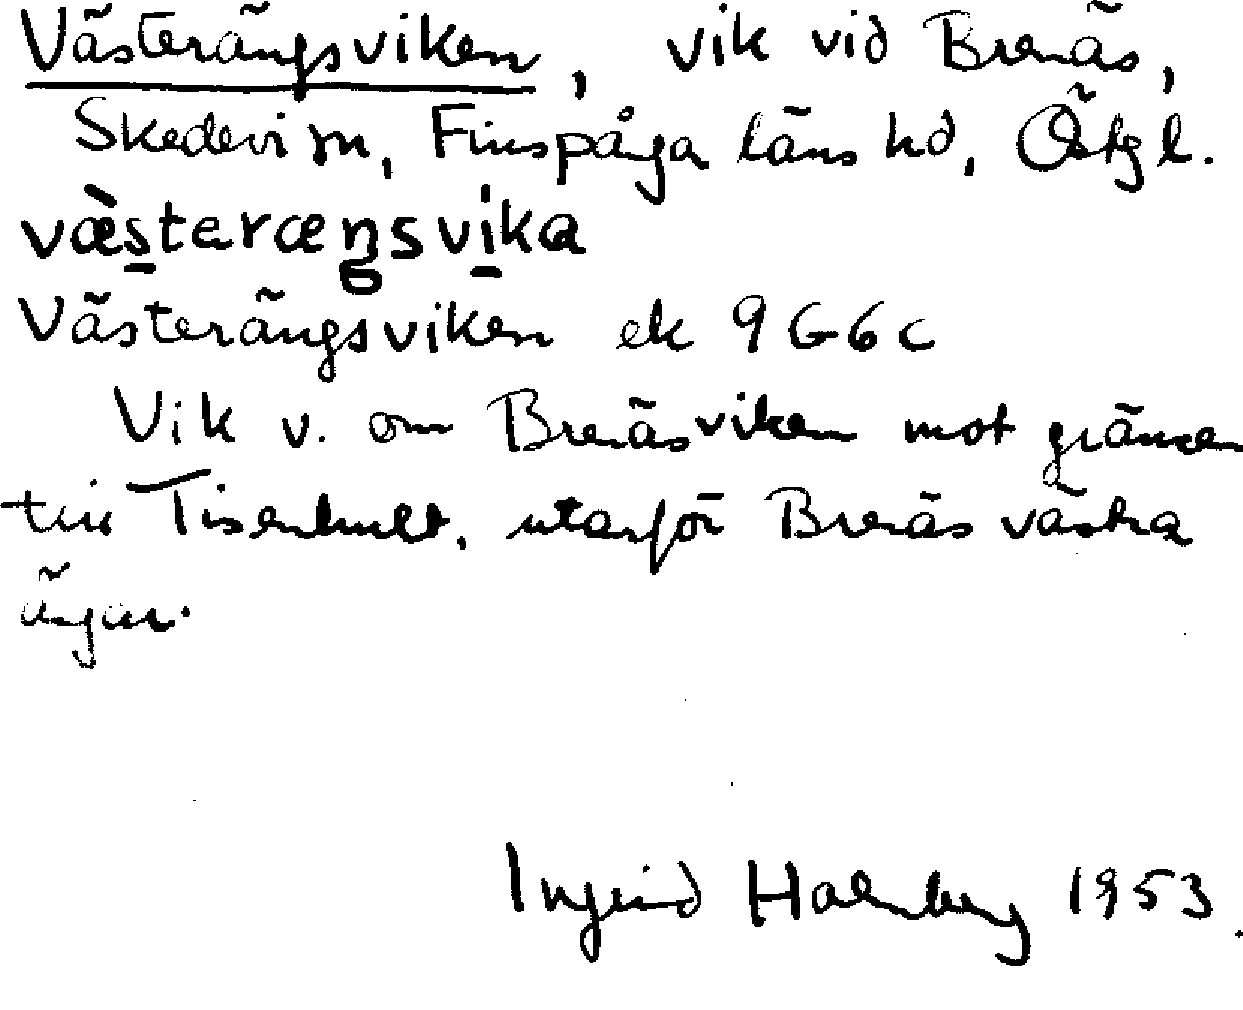 Västerängsviken, vik vid Brenäs,
Skedevi sn, Finspånga läns hd, Östgl.
væ̀steræŋsvika
Västerängsviken ek 9G6c
Vik v. om Brenäsviken mot gränsen
till Tisenhult, utanför Brenäs västra
ängar.
Ingrid Holmberg 1953.